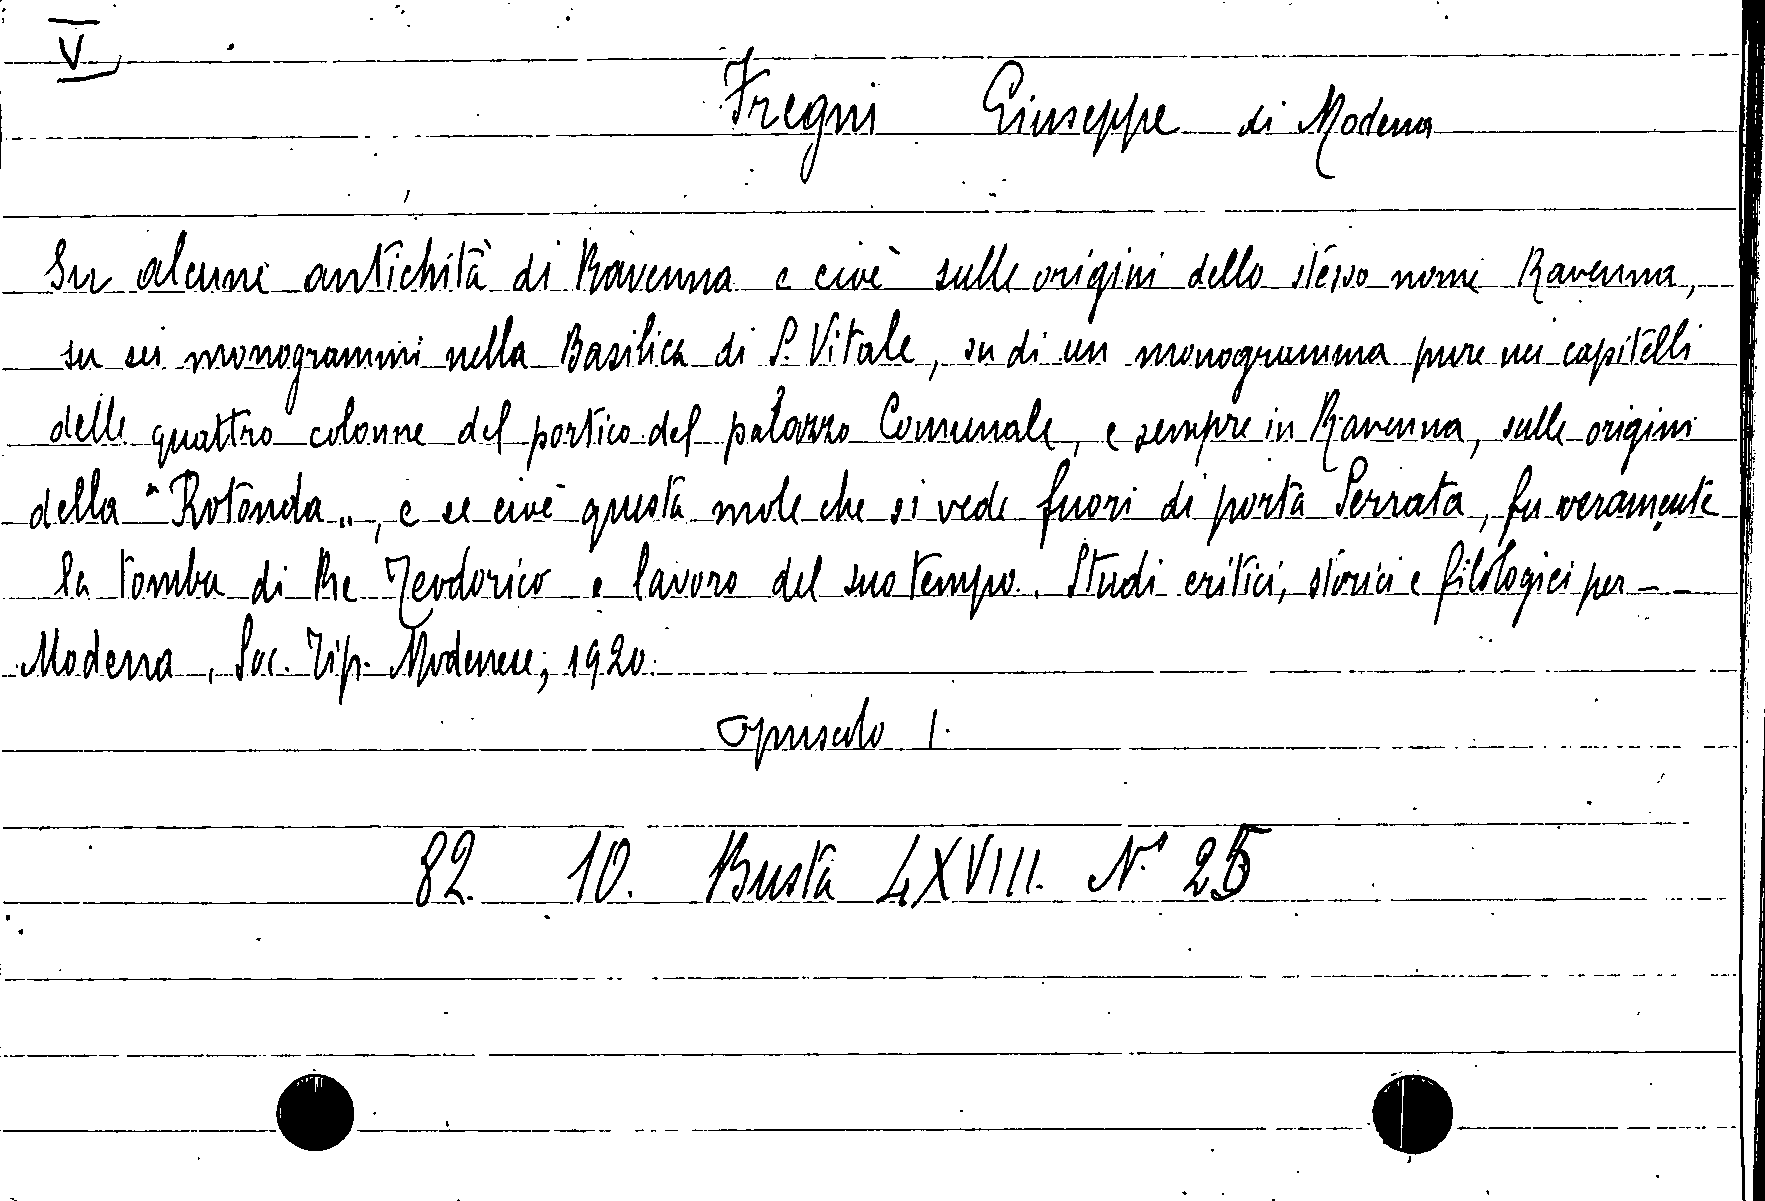 V
Fregni Giuseppe di Modena
Su alcune antichità di Ravenna e cioè sulle origini dello stesso nome Ravenna,
su sei monogrammi nella Basilica di S. Vitale, su di un monogramma pure nei capitelli
delle quattro colonne del portico del palazzo Comunale, e sempre in Ravenna, sulle origini
della "Rotonda", e se cioè questa mole che si vede fuori di porta Serrata, fu veramente
la tomba di Re Teodorico e lavoro del suo tempo. Studi critici, storici e filologici per --
Modena, Soc. Tip. Modenese, 1920.
Opuscolo 1.
82. 10. Busta LXVIII. N.° 25